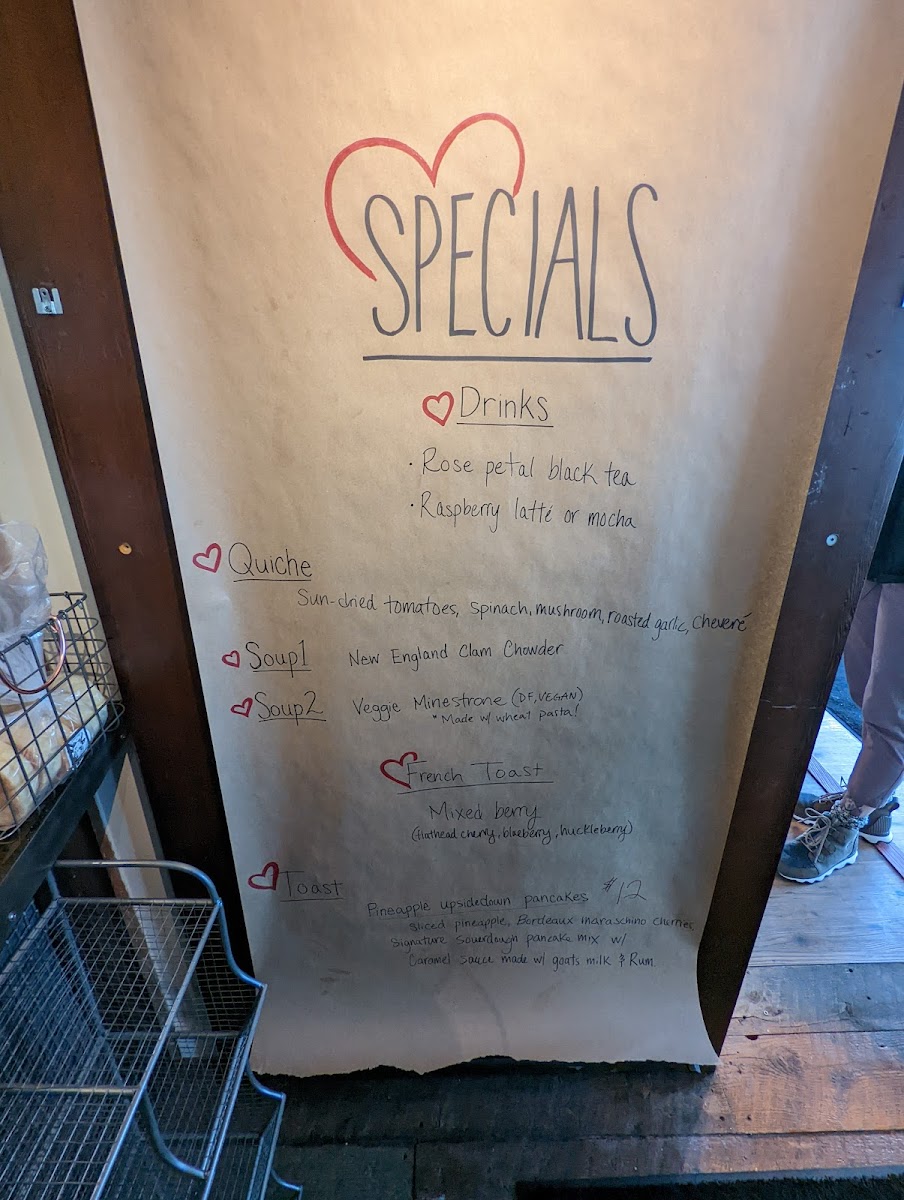 SPECIALS
Drinks
· Rose petal black tea
· Raspberry latté or mocha
Quiche
Sun-dried tomatoes, spinach, mushroom, roasted garlic, cheveré
Soup1 New England Clam Chowder
Soup2 Veggie Minestrone (DF, VEGAN)
*Made w/ wheat pasta!
French Toast
Mixed berry
(flathead cherry, blueberry, huckleberry)
Toast
Pineapple upsidedown pancakes $12
Sliced pineapple, Bordeaux maraschino cherries,
Signature Sourdough pancake mix w/
Caramel sauce made w/ goats milk & Rum.